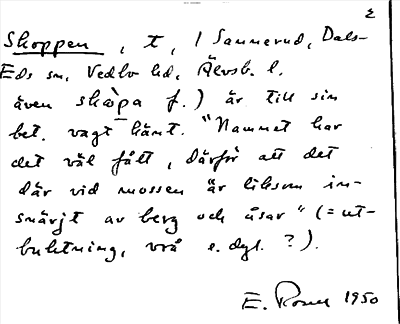 2
Skoppen, t, 1 Sannerud, Dals-
Eds sn, Vedbo hd, Älvsb. l.
även skåpa f.) är till sin
bet. vagt känt. "Namnet har
det väl fått, därför att det
där vid mossen är liksom in-
snärjt av berg och åsar" (= ut-
buktning, vrå e.dyl. ?).
E. Rosell 1950